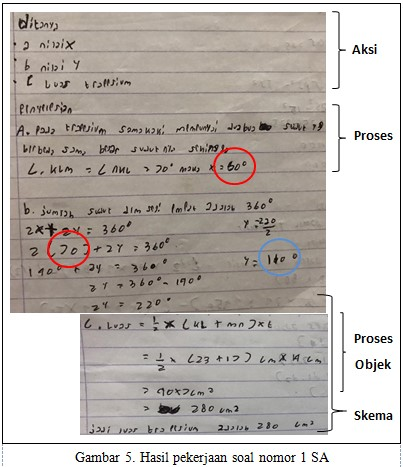 ditanya
• a nilai x
• b nilai y
• C Luas trapesium
Penyelesaian
A. Pada trapesium samakaki mempunyai sudut yg
sama, besar sudut nya sehingga
∠. KLM = ∠NKL = 70° maka x = 60°
b. jumlah sudut dlm segi empat adalah 360°
2x + 2y = 360°
2 (70) + 2y = 360°
140° + 2y = 360°
2y = 360° - 140°
2y = 220°
y = 220/2
y = 110°
C. Luas = 1/2 x (KL + mn) x t
= 1/2 x (23 + 17) cm x 14 cm
= 40 x 7 cm²
= 280 cm²
jadi luas trapesium adalah 280 cm²
Aksi
Proses
Proses
Objek
Skema
Gambar 5. Hasil pekerjaan soal nomor 1 SA